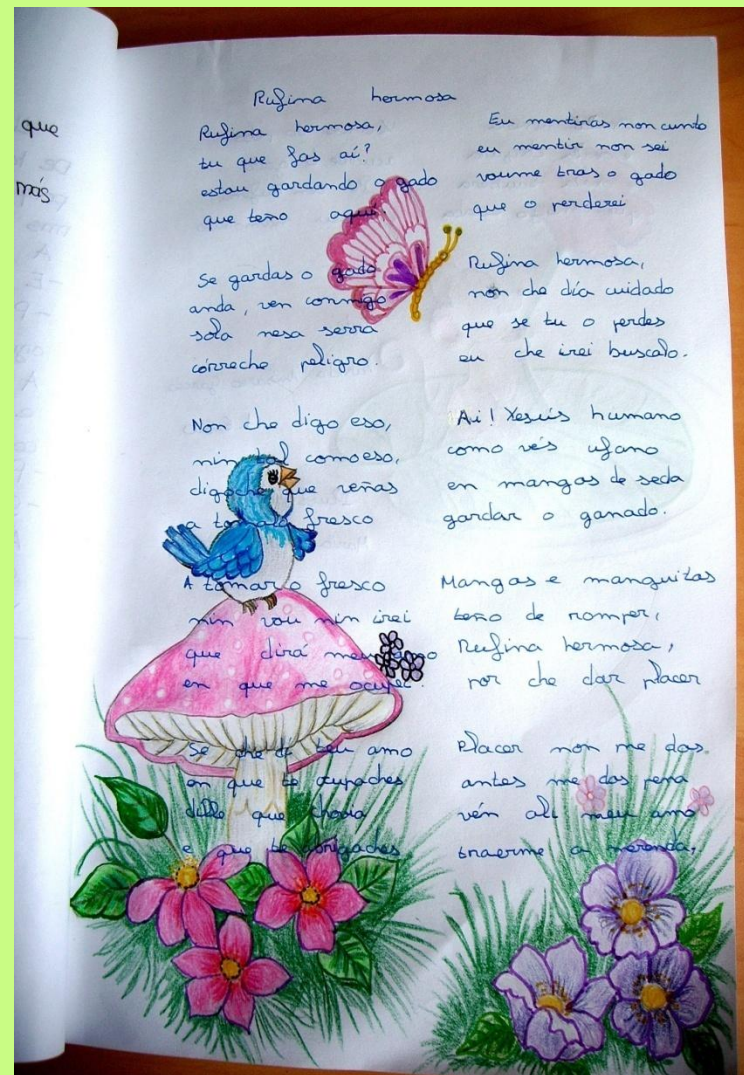 que
más
Rufina hermosa
Rufina hermosa,
tu que fas aí?
estou gardando o gado
que teño aquí.
Se gardas o gado
anda, ven conmigo
sola nesa serra
córreche peligro.
Non che digo eso,
nin tal como eso,
digoche que veñas
a tomalo fresco
A tomar o fresco
nin vou nin irei
que dirá meu amo
en que me ocupei.
Se che di teu amo
en que te ocupaches
dille que chovía
e que te abrigaches
Eu mentiras non cunto
eu mentir non sei
voume tras o gado
que o perderei
Rufina hermosa,
non che día cuidado
que se tu o perdes
eu che irei buscalo.
Ai! Xesús humano
como vés ufano
en mangas de seda
gardar o ganado.
Mangas e manguitas
teño de romper,
Rufina hermosa,
por che dar placer
Placer non me das.
antes me das pena
vén alí meu amo
traerme a merenda,